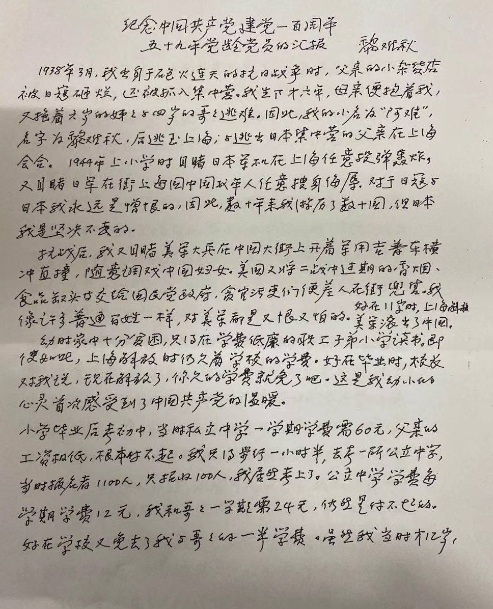 纪念中国共产党建党一百周年
五十九年党龄党员的汇报 黎难秋
1938年3月,我出身于砲火连天的抗日战争时,父亲的小杂货店
被日寇砸烂,还被抓入集中营。我生下才六天,母亲便抱着我,
又拖着六岁的姊与四岁的哥逃难。因此,我的小名为“阿难”,
名字为黎难秋,后逃至上海;与逃出日本集中营的父亲在上海
会合。1944年上小学时目睹日本军机在上海任意投弹轰炸。
又目睹日军在街上为国中国成年人任意搜身侮辱。对于日寇与
日本我永远是憎恨的,因此,数十年来我游历了数十国,但日本
我是坚决不去的。
抗战后,我又目睹美军大兵在中国大街上开着军用吉普车横
冲直撞,随意调戏中国妇女。美国又将二战中过期的香烟、
食品罐头等交给国民党政府,贪官污吏们便差人在街兜卖。我
像许多普通百姓一样,对美军都是又恨又怕的。
好在11岁时,上海解放
美军滚出了中国。
幼时家中十分贫困,只得在学费低廉的职工子弟小学读书,即
便如此,上海解放时仍欠着学校的学费。好在毕业时,校长
对我说,现在解放了,你欠的学费就免了吧。这是我幼小的
心灵首次感受到了中国共产党的温暖。
小学毕业后考初中,当时私立中学一学期学费需60元,父亲的
工资极低,根本付不起。我只得步行一小时半,去考一所公立中学,
当时报名者1100人,只招收100人,我居然考上了。公立中学学费每
学期学费12元,我和哥一学期需24元,仍然是付不起的。
好在学校又免去了我与哥的一半学费。虽然我当时才12岁,